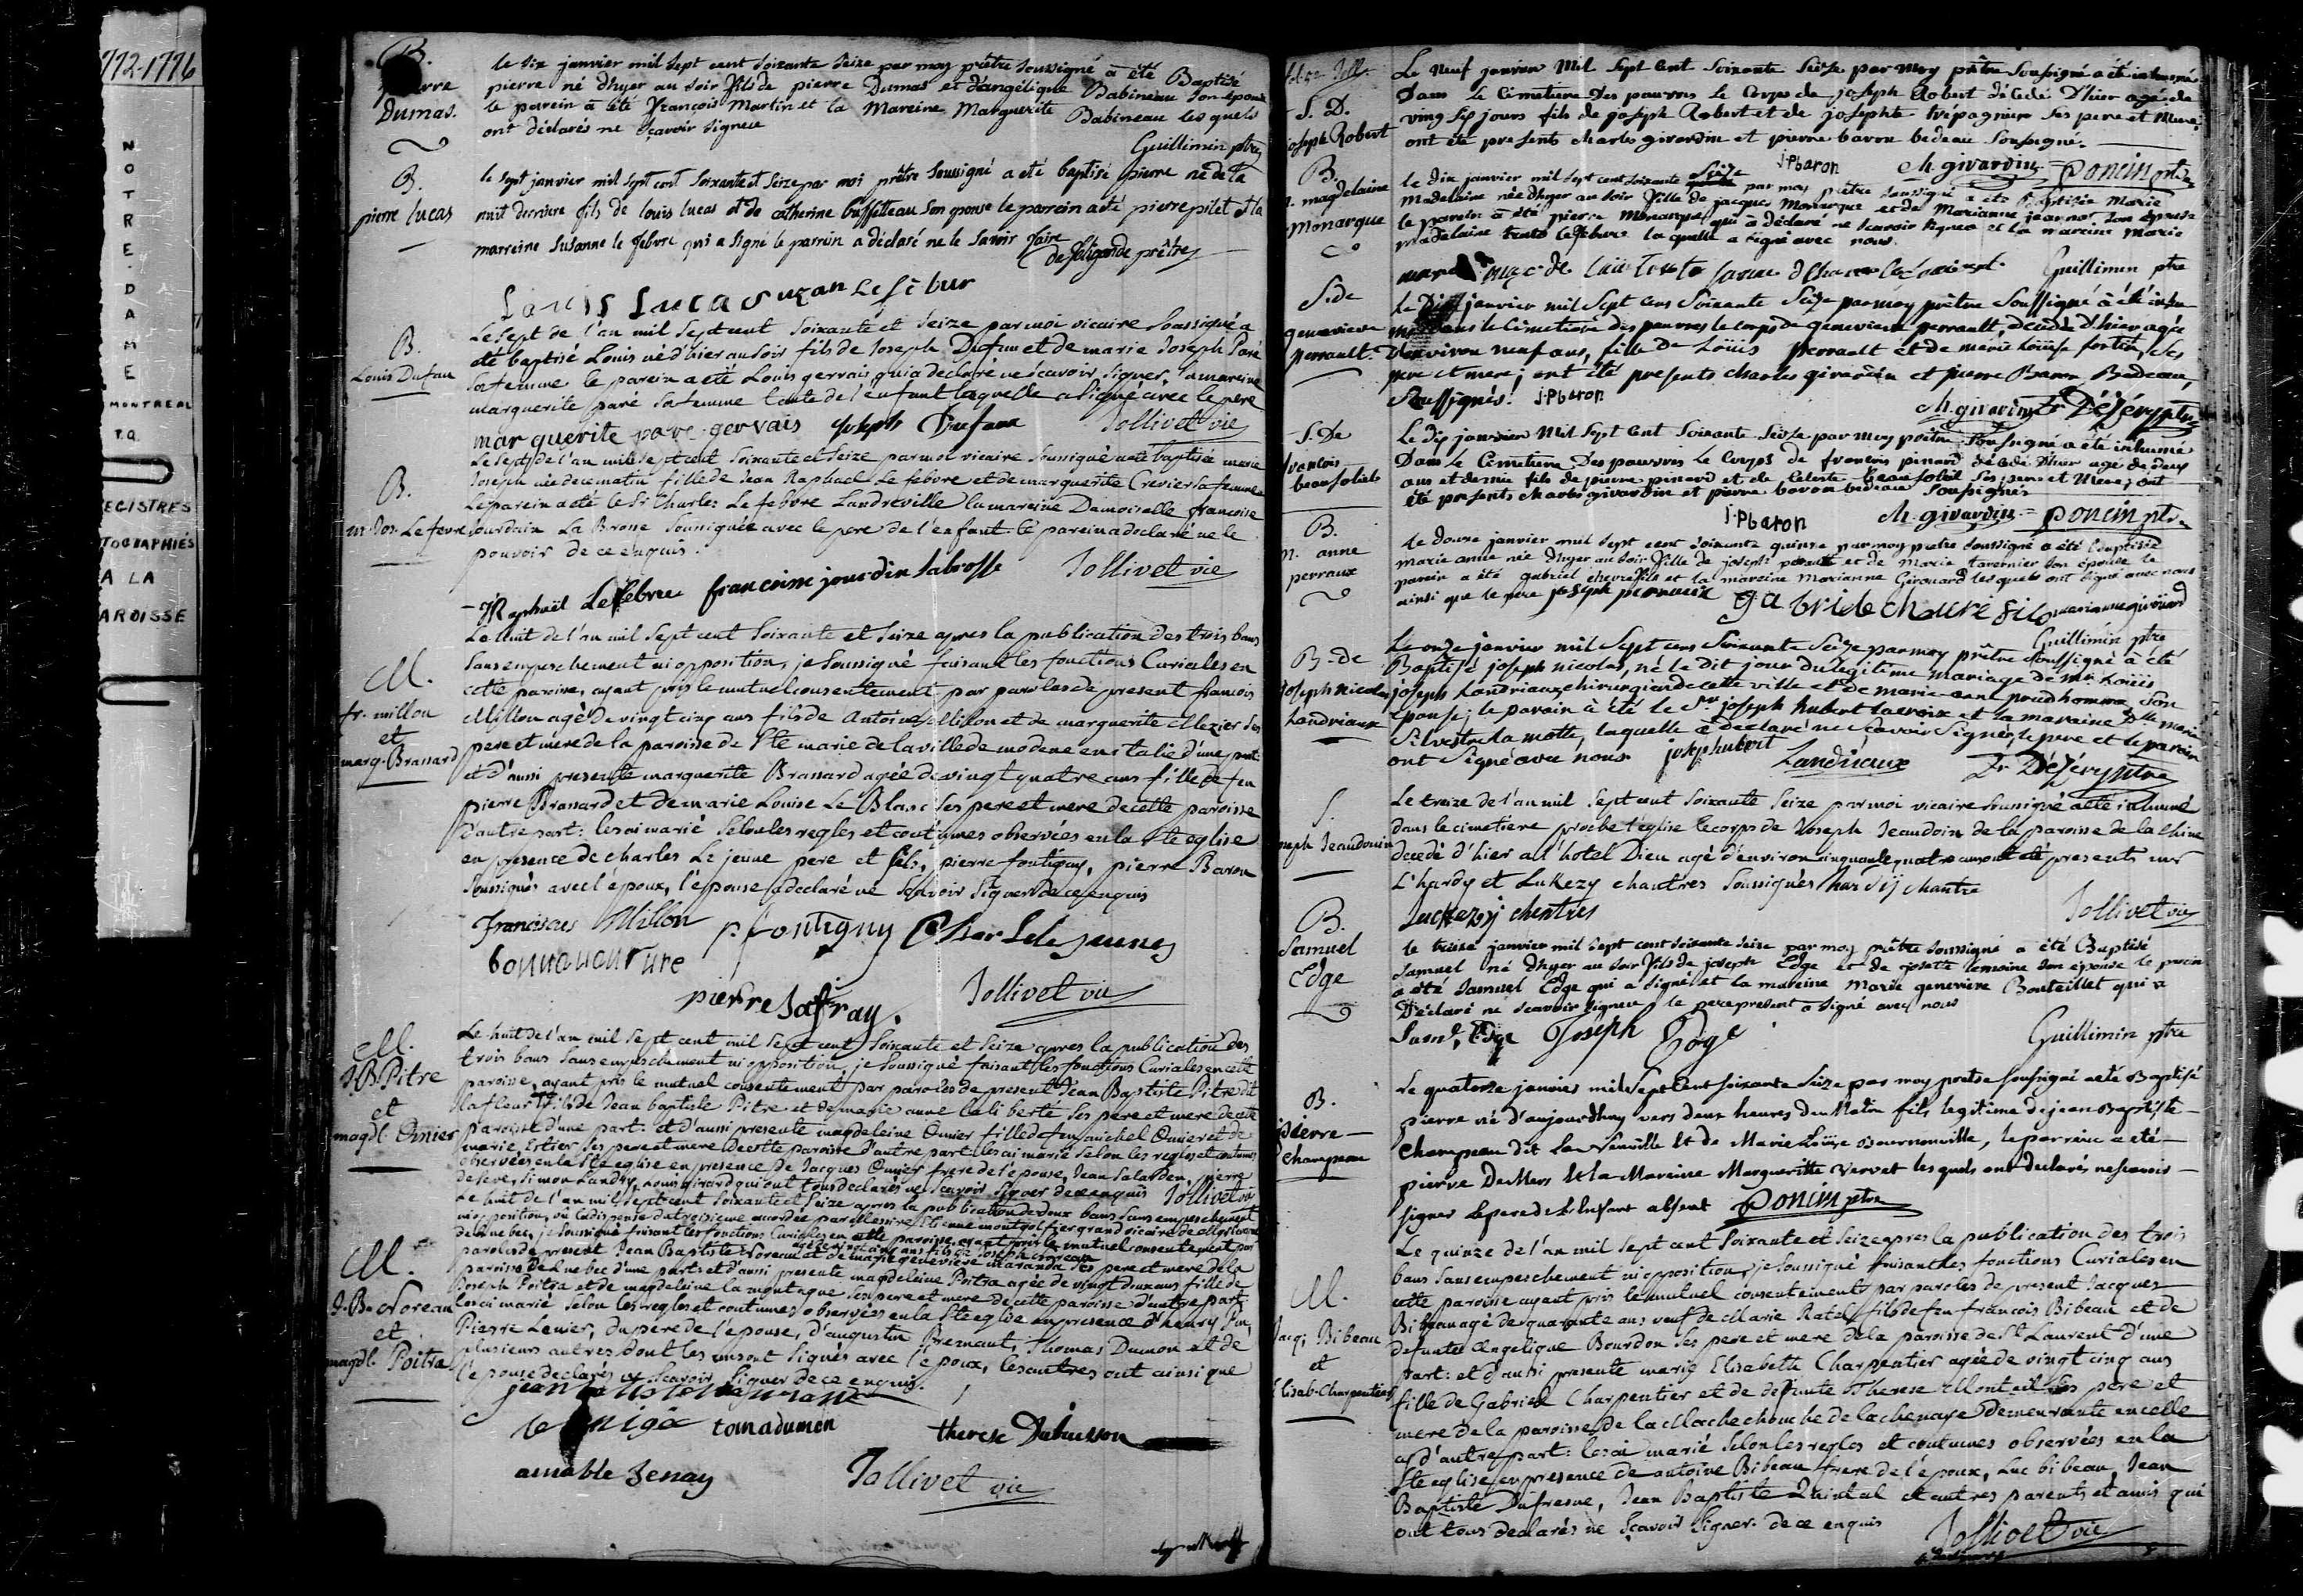 772-1776
NOTRE-DAME
MONTREAL
P.Q.
REGISTRES
PHOTOGRAPHIÉS
A LA
PAROISSE
B.
pierre
Dumas.
le six janvier mil sept cent soixante seize par moy prêtre soussigné à été Baptisé
pierre né dhyer au soir fils de pierre Dumas et d'angélique Babineau son épouse
le parein à été François Martin et la Mareine Marguerite Babineau les quels
ont déclarés ne sçavoir signer
Guillimin ptre
B.
pierre lucas
le sept janvier mil sept cent soixante et seize par moi prêtre soussigné a eté baptisé pierre né de la
nuit derniere fils de louis lucas et de catherine buffetteau son epouse le parrein a eté pierre pilet et la
marreine susanne le febvre qui a signé le parrein a déclaré ne le savoir faire
prêtre
Louis Lucas suzan Lefebur
B.
Louis Dufau
Le sept de l'an mil sept cent soixante et seize par moi vicaire soussigné a
été baptisé Louis né d'hier au soir fils de Joseph Dufau et de marie Joseph Paré
sa femme le parein a eté Louis gervais qui a declaré ne scavoir signer, la mareine
marguerite paré sa femme tante de l'enfant laquelle a signé avec le pere
marguerite pare gervais Joseph Dufaux Jollivet vic
B.
m. Jos. Lefevre
Le sept de l'an mil sept cent soixante et seize par moi vicaire soussigné a eté baptisée marie
Joseph née de ce matin fille de Jean Raphael Le febvre et de marguerite Crevier sa femme
Le parein a eté le Sr Charles Le febvre Landreville la mareine Damoiselle francoise
Jourdain La Brosse soussignée avec le pere de l'enfant le parein a declaré ne le
pouvoir de ce enquis.
Raphaël Lefebvre francoise jourdin labrosse Jollivet vic
M.
fr. millon
et
marg. Brassard
Le huit de l'an mil sept cent soixante et seize apres la publication des trois bans
sans empeschement ni opposition, je soussigné faisant les fonctions Curiales en
cette paroisse, ayant pris le mutuel consentement par paroles de present francois
Millon agé de vingt cinq ans fils de Antoine Millon et de marguerite Mezier ses
pere et mere de la paroisse de Ste marie de la ville de modene en italie d'une part
et d'aussi presente marguerite Brassard agée de vingt quatre ans fille de feu
pierre Brassard et de marie Louise Le Blanc ses pere et mere de cette paroisse
d'autre part: les ai marié selon les regles et coutumes observées en la Ste eglise
en presence de charles Le jeune pere et fils, pierre fontigny, pierre Baron
soussignés avec l'époux, l'épouse a declaré ne scavoir signer de ce enquis
Franciscus Millon pfontigny Charle le jeunes
bonnavanture
pierre Safray. Jollivet vic
M.
J. B. Pitre
et
magdl. Omier
Le huit de l'an mil sept cent mil sept cent soixante et seize apres la publication des
trois bans sans empeschement ni opposition, je soussigné faisant les fonctions Curiales en cette
paroisse, ayant pris le mutuel consentement par paroles de present Jean Baptiste Pitre dit
lafleur fils de Jean baptiste Pitre et de marie anne laliberté ses pere et mere de cette
paroisse d'une part et d'aussi presente magdeleine Omier fille de feu michel Omier et de
marie Ertier ses pere et mere de cette paroisse d'autre part les ai marié selon les regles et coutumes
observées en la Ste eglise en presence de Jacques Omier frere de l'epouse, Jean Salarden, pierre
deseve, simon Landry, Louis girard qui ont tous declarés ne scavoir signer de ce enquis Jollivet vic
M.
J. B. Noreau
et
magdl. Poitra
Le huit de l'an mil sept cent soixante et seize apres la publication de deux bans sans empeschement
ni opposition, vû la dispense du troisieme accordée par Messire Etienne montgolfier grand vicaire de Monseigneur
de Quebec, je soussigné faisant les fonctions Curiales en cette paroisse ayant pris le mutuel consentement par
paroles de present Jean Baptiste Noreau agé de vingt cinq ans fils de Joseph noreau et de marie genevieve maranda ses pere et mere de la
paroisse de Quebec d'une part et d'aussi presente magdeleine Poitra agée de vingt deux ans fille de
Joseph Poitra et de magdeleine la montagne ses pere et mere de cette paroisse d'autre part
les ai marié selon les regles et coutumes observées en la Ste eglise en presence d'henry
Pierre Lenier, du pere de l'epouse, d'augustin Brenant, Thomas Dumon et de
plusieurs autres dont les uns ont signés avec l'epoux, les autres ont ainsi que
l'épouse declarés ne scavoir signer de ce enquis.
tomadumon therese Dubuisson
amable Jenay Jollivet vic
S. D.
joseph Robert
Le neuf janvier mil sept cent soixante seize par moy prêtre soussigné a été inhumé
Dans le Cimetiere Des pauvres le Corps de joseph Robert décédé D'hier agé de
ving six jours fils de joseph Robert et de josephte trépagnier ses pere et mere;
ont été presents charles girardin et pierre baron bedeau soussigné.
j. Pbaron Ch. girardin Poncin ptre
B.
m. magdelaine
monarque
le dix janvier mil sept cent soixante seize par moy prêtre soussigné a été baptisée Marie
Madelaine née dhyer au soir fille de jacques Monarque et de Marianne jeannot son épouse
le parein à été pierre Monarque qui à déclaré ne scavoir signer et la mareine Marie
madelaine lefebvre la quelle a signé avec nous.
Guillimin ptre
S. de
genevieve
perrault
Le Dix janvier mil sept cens soixante seize par moy prêtre soussigné à été inhumé
dans le Cimetiere des pauvres le corps de genevieve perrault, decedé d'hier agée
d'environ neuf ans, fille De Loüis perrault et de marie Loüise fortin, ses
pere et mere; ont été presents charles girardin et pierre Baron Bedeau,
Soussignés. j. Pbaron
Ch. girardin Dr Déséry ptre
S. De
francois
beausoleil
Le dix janvier mil sept cent soixante seize par moy prêtre soussigné a été inhumé
Dans le Cimetiere Des pauvres le Corps de francois pinard décédé D'hier agé de deux
ans et demie fils de pierre pinard et de Celeste beausoleil ses pere et mere; ont
été presents charles girardin et pierre baron bedeau soussignés
j. Pbaron Ch. girardin Poncin ptre
B.
m. anne
perraux
le douze janvier mil sept cent soixante quinze par moy prêtre soussigné a été baptisée
marie anne née dhyer au soir fille de joseph perault et de Marie tavernier son épouse le
parein a été gabriel chevrefils et la mareine Marianne Girouard les quels ont signé avec nous
ainsi que le pere joseph perraux gabriel chevrefils marianne girouard
Guillimin ptre
B. de
Joseph nicolas
Landriaux
Le onze janvier mil sept cens soixante seize par moy prêtre soussigné à été
Baptisé joseph nicolas, né le dit jour du legitime mariage de mr. Loüis
joseph Landriaux chirurgien de cette ville et de marie anne prudhomme son
Epouse; le parain à été le Sr joseph hubert lacroix et la maraine Dlle marie
Silvestre La motte, laquelle à declaré ne scavoir signer, le pere et le parain
ont signé avec nous. joseph hubert Landriaux Dr Déséry ptre
S.
Joseph Jeaudouin
Le treize de l'an mil sept cent soixante seize par moi vicaire soussigné a eté inhumé
dans le cimetiere proche l'eglise le corps de Joseph Jeaudoin de la paroisse de la Chine
decedé d'hier a l'hotel Dieu agé d'environ cinquante quatre ans ont eté presents mr
L'hardy et LuKezy chantres soussignés hardij chantre
luckezij chentres Jollivet vic
B.
Samuel
Edge
le treize janvier mil sept cent soixante seize par moy prêtre soussigné a été Baptisé
Samuel né dhyer au soir fils de joseph Edge et de josette lemoine son épouse le parein
a été Samuel Edge qui a signé et la mareine Marie genevieve Bouteillet qui a
Déclaré ne scavoir signer le pere present a signé avec nous
Saml. Edge Joseph Edge Guillimin ptre
B.
pierre
Champeau
Le quatorze janvier mil sept cent soixante seize par moy prêtre soussigné a eté Baptisé
pierre né d'aujourdhuy vers deux heures du matin fils legitime de jean Baptiste
Champeau dit La Neuville et de Marie Loüise Bournonville, le parrain a été
pierre DeMers et la Mareine Margueritte Vervet les quels ont déclarés ne scavoir
signer le pere de l'enfant absent Poncin ptre
M.
Jacq. Bibeau
et
Elisab. Charpentier
Le quinze de l'an mil sept cent soixante et seize apres la publication des trois
bans sans empeschement ni opposition, je soussigné faisant les fonctions Curiales en
cette paroisse ayant pris le mutuel consentement par paroles de present Jacques
Bibeau agé de quarante ans veuf de Marie Ratel fils de feu francois Bibeau et de
defunte Angelique Bourdon ses pere et mere de la paroisse de St Laurent d'une
part: et d'aussi presente marie Elisabeth Charpentier agée de vingt cinq ans
fille de Gabriel Charpentier et de defunte Therese Monteil ses pere et
mere de la paroisse de la Machechouche de lachenaye demeurante en celle
cy d'autre part: les ai marié selon les regles et coutumes observées en la
Ste eglise en presence de antoine Bibeau frere de l'epoux, Luc bibeau, Jean
Baptiste Dufresne, Jean Baptiste Quintal et autres parents et amis qui
ont tous declarés ne scavoir signer de ce enquis Jollivet vic